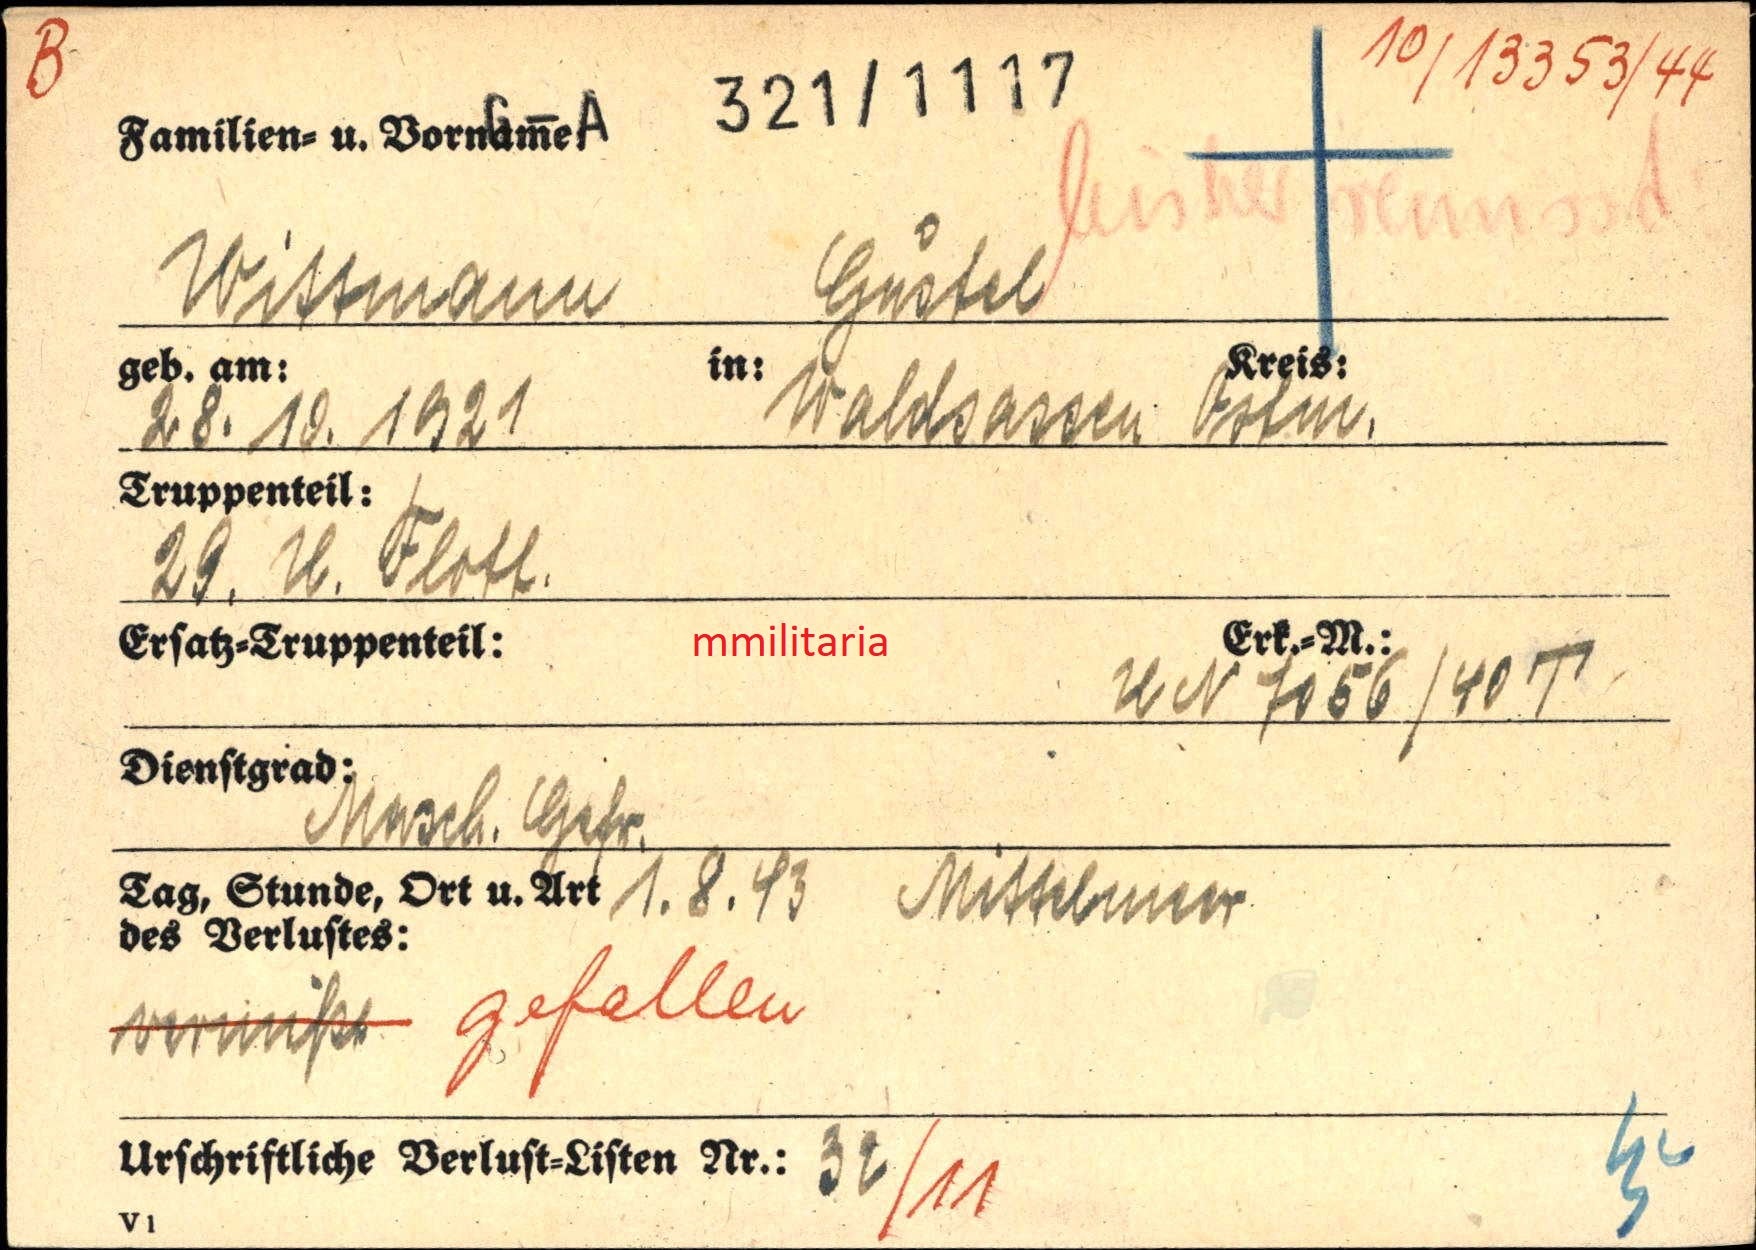 B
10/13353/44
321/1117
Familien- u. Vorname:
bisher vermisst
Wittmann Gustel
geb. am: in: Kreis:
28. 10. 1921 Waldsassen Ostm.
Truppenteil:
29. U. Flott.
Ersatz-Truppenteil: mmilitaria Erk.-M.:
UN 7056/40 T
Dienstgrad:
Masch. Gefr.
Tag, Stunde, Ort u. Art 1.8.43 Mittelmeer
des Verlustes:
vermißt gefallen
Urschriftliche Verlust-Listen Nr.: 32/11
V 1